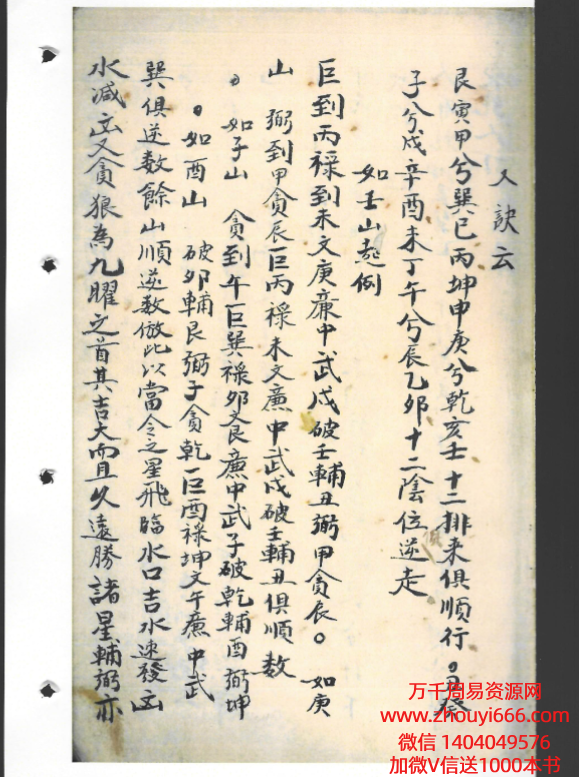 又訣云
艮寅甲兮巽巳丙坤申庚兮乾亥壬十二排来俱順行。丑癸
子兮戍辛酉未丁午兮辰乙夘十二陰位逆走
如壬山起例
巨到丙禄到未文庚廉中武戍破壬輔丑弼甲貪辰。如庚
山 弼到甲貪辰巨丙禄未文廉中武戍破壬輔丑俱順数
。如子山 貪到午巨巽禄夘文艮廉中武子破乾輔酉弼坤
。如酉山 破夘輔艮弼子貪乾巨酉禄坤文午廉中武
巽俱逆数餘山順逆数倣此以當令之星飛臨水口吉水速發凶
水减凶又貪狼為九曜之首其吉大而且久遠勝諸星輔弼亦
万千周易资源网
www.zhouyi666.com
微信 1404049576
加微V信送1000本书